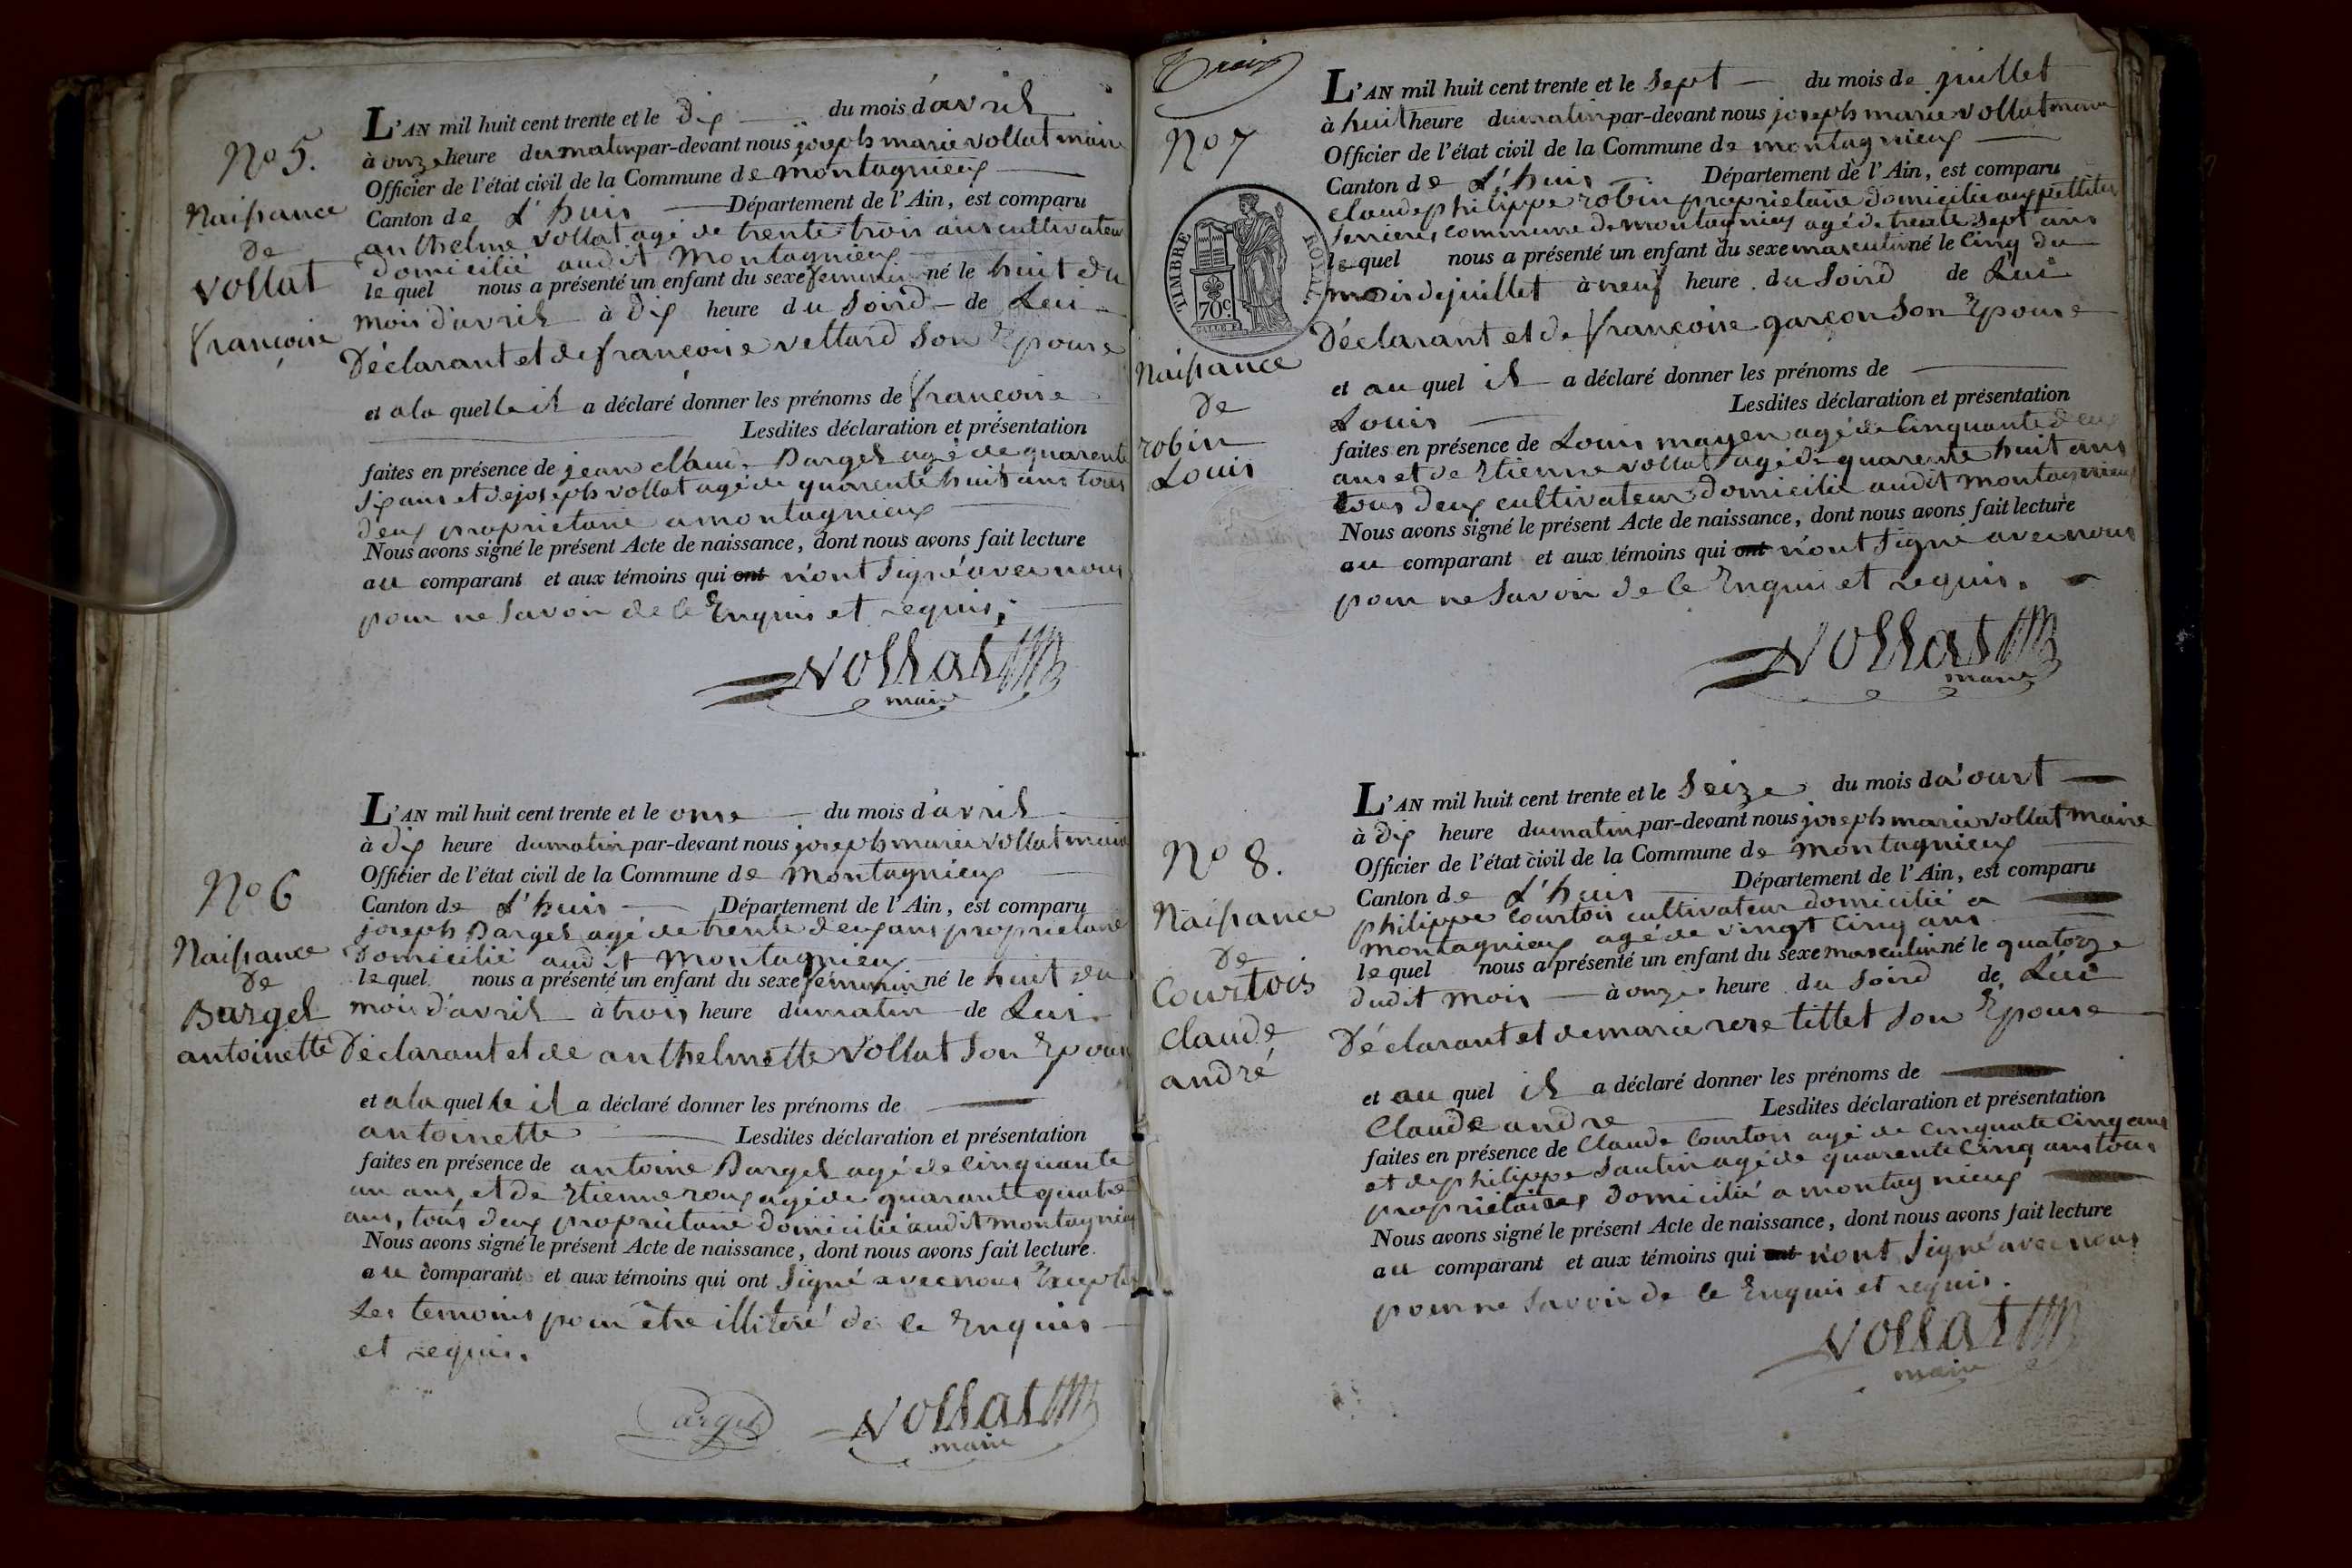 No 5.
Naissance
de
Vollat
françoise
L'AN mil huit cent trente et le dix du mois d'avril
à onze heure du matin par-devant nous joseph marie vollat maire
Officier de l'état civil de la Commune de montagnieux
Canton de L'huis Département de l'Ain, est comparu
anthelme vollat agé de trente trois ans cultivateur
domicilié audit Montagnieux
lequel nous a présenté un enfant du sexe feminin né le huit du
mois d'avril à dix heure du soird de Lui
Déclarant et de françoise vettard son Epouse
et a la quelle il a déclaré donner les prénoms de françoise
Lesdites déclaration et présentation
faites en présence de jean claude Bargel agé de quarente
six ans et de joseph vollat agé de quarente huit ans tous
deux proprietaire a montagnieux
Nous avons signé le présent Acte de naissance, dont nous avons fait lecture
au comparant et aux témoins qui ont n'ont signé avec nous
pour ne savoir de le Enquis et requis.
Vollat
maire
No 6
Naissance
de
Bargel
antoinette
L'AN mil huit cent trente et le onse du mois d'avril
à dix heure du matin par-devant nous joseph marie vollat maire
Officier de l'état civil de la Commune de Montagnieux
Canton de L'huis Département de l'Ain, est comparu
joseph Bargel agé de trente deux ans proprietaire
Domicilié audit Montagnieux
lequel nous a présenté un enfant du sexe féminin né le huit du
mois d'avril à trois heure du matin de Lui
Déclarant et de anthelmette Vollat son Epouse
et a la quelle il a déclaré donner les prénoms de
antoinette Lesdites déclaration et présentation
faites en présence de antoine Bargel agé de cinquante
un ans, et de Etienne roux agé de quarante quatre
ans, tous deux proprietaire domicilié audit montagnieux
Nous avons signé le présent Acte de naissance, dont nous avons fait lecture
au comparant et aux témoins qui ont signé avec nous Excepté
Les temoins pour être illiteré de le Enquis
et requis.
Bargel
Vollat
maire
Trois
No 7
TIMBRE ROYAL
70c
Naissance
de
robin
Louis
L'AN mil huit cent trente et le sept du mois de juillet
à huit heure du matin par-devant nous joseph marie vollat maire
Officier de l'état civil de la Commune de montagnieux
Canton de L'huis Département de l'Ain, est comparu
claude philippe robin proprietaire domicilié aux petittes
serrieres commune de montagnieux agé de trente sept ans
lequel nous a présenté un enfant du sexe masculin né le cinq du
mois de juillet à neuf heure du soird de Lui
Déclarant et de françoise garçon son Epouse
et au quel il a déclaré donner les prénoms de
Louis Lesdites déclaration et présentation
faites en présence de Louis mayen agé de cinquante deux
ans et de Etienne vollat agé de quarente huit ans
tous deux cultivateurs domicilié audit montagnieux
Nous avons signé le présent Acte de naissance, dont nous avons fait lecture
au comparant et aux témoins qui ont n'ont signé avec nous
pour ne savoir de le Enquis et requis.
Vollat
maire
No 8.
Naissance
de
Courtois
claude
andré
L'AN mil huit cent trente et le seize du mois d'aoust
à dix heure du matin par-devant nous joseph marie vollat maire
Officier de l'état civil de la Commune de Montagnieux
Canton de L'huis Département de l'Ain, est comparu
philippe Courtois cultivateur domicilié a
Montagnieux agé de vingt cinq ans
lequel nous a présenté un enfant du sexe masculin né le quatorze
dudit mois à onze heure du soird de Lui
Déclarant et de marie rose tittet son Epouse
et au quel il a déclaré donner les prénoms de
Claude andre Lesdites déclaration et présentation
faites en présence de Claude Courtois agé de cinquate cinq ans
et de philippe sautin agé de quarente cinq ans tous
proprietaires domicilié a montagnieux
Nous avons signé le présent Acte de naissance, dont nous avons fait lecture
au comparant et aux témoins qui ont n'ont signé avec nous
pour ne savoir de le Enquis et requis.
Vollat
maire